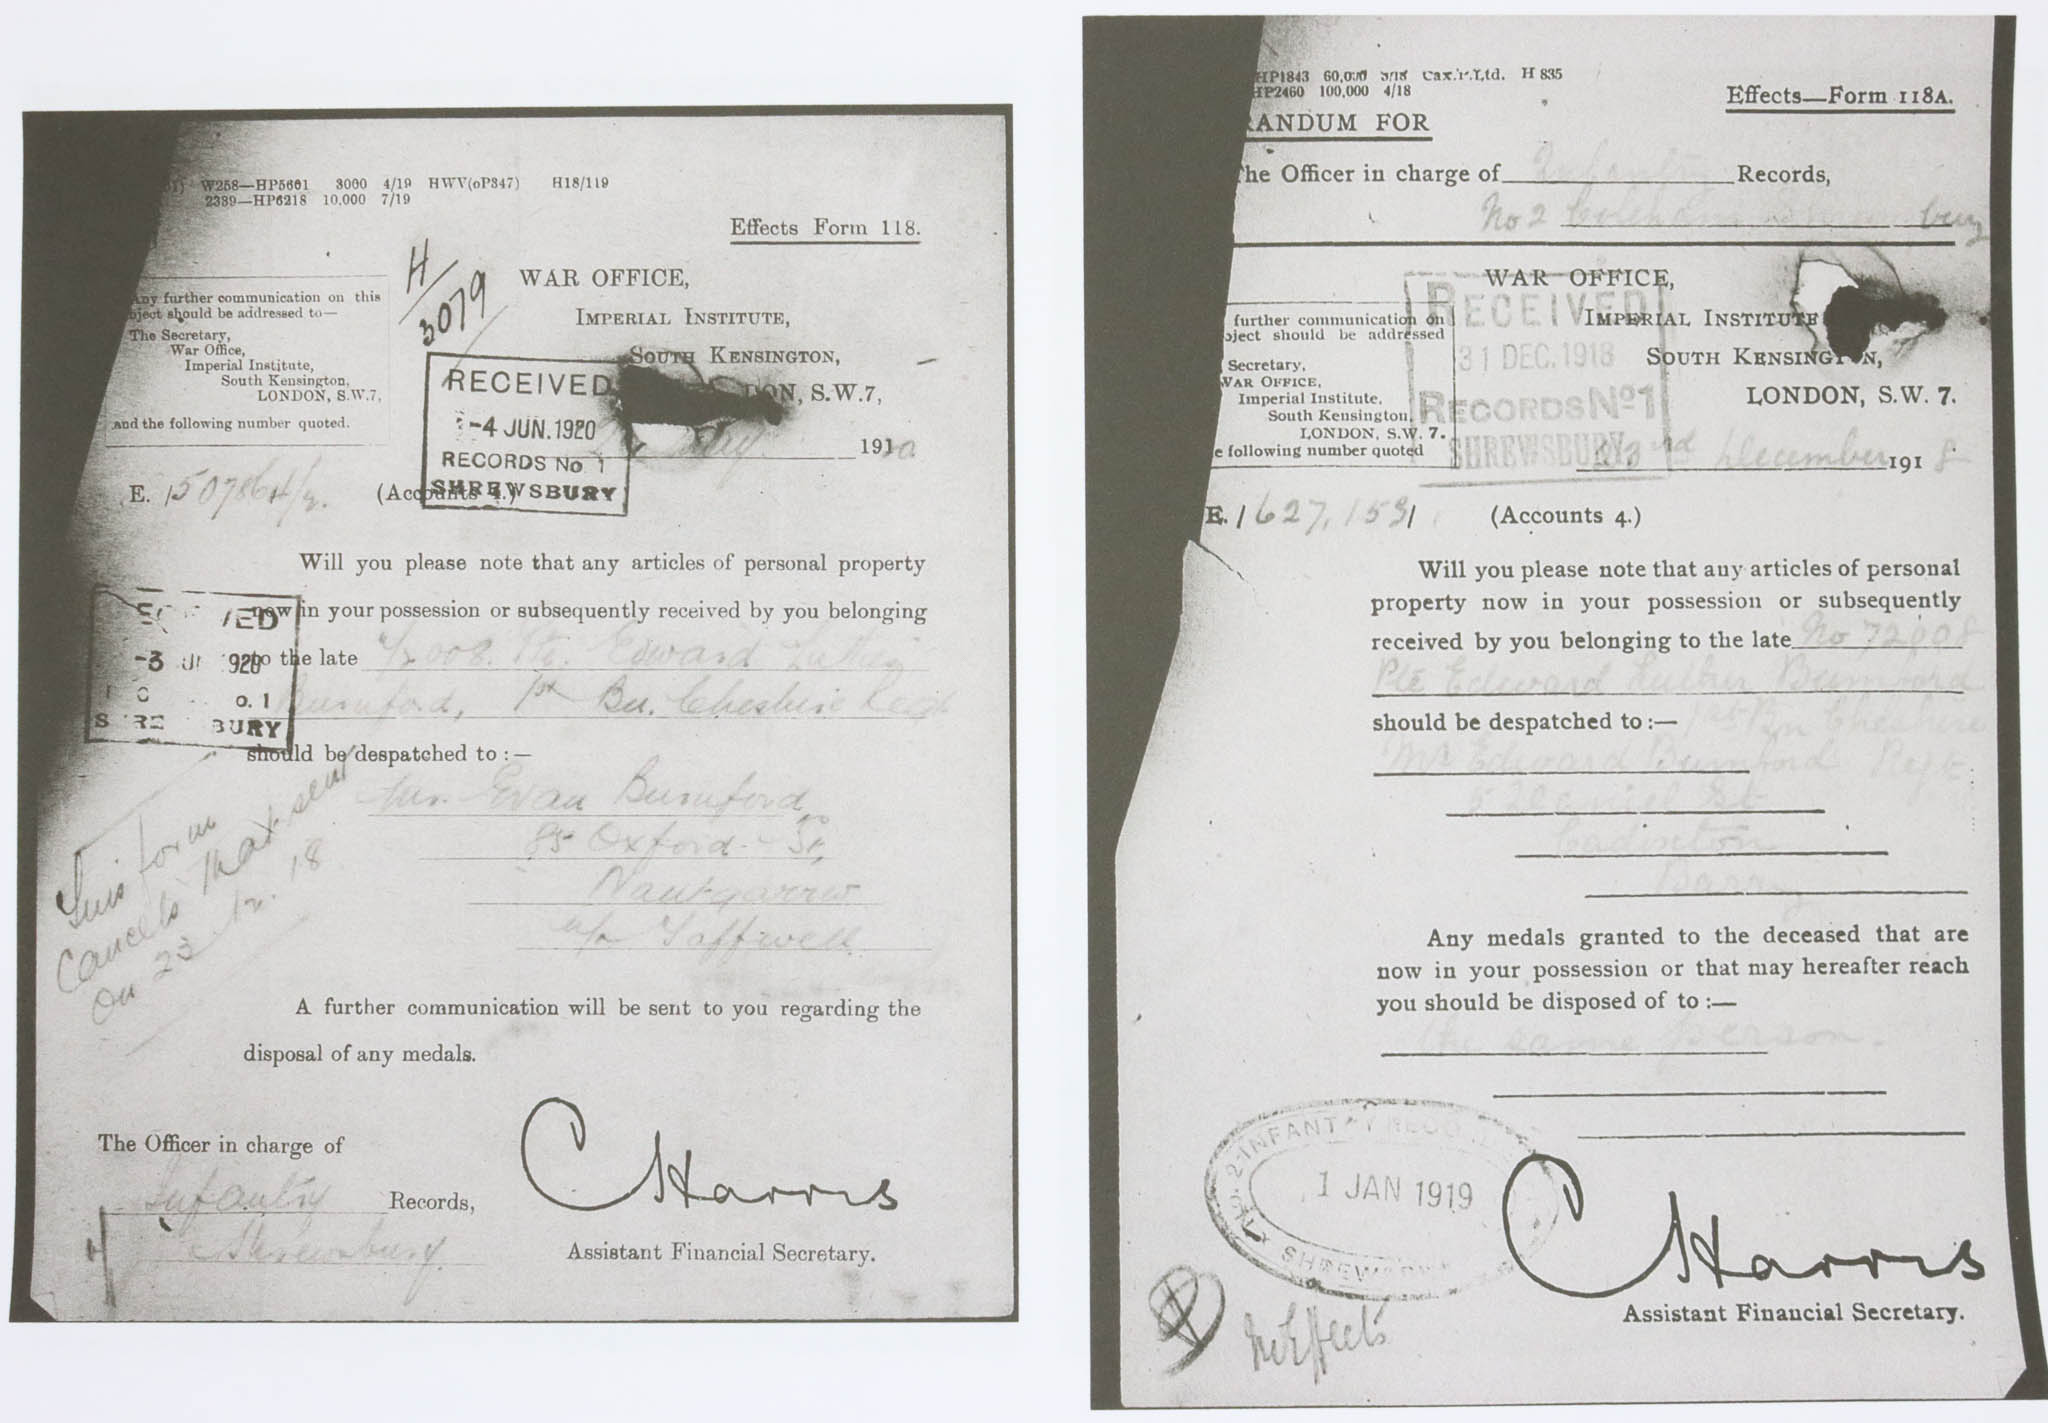 W258—HP5601 3000 4/19 HWV(oP347) H18/119
2389—HP6218 10,000 7/19
Effects Form 118.
H/3079
WAR OFFICE,
IMPERIAL INSTITUTE,
SOUTH KENSINGTON,
DON, S.W.7,
1910
Any further communication on this
bject should be addressed to—
The Secretary,
War Office,
Imperial Institute,
South Kensington,
LONDON, S.W.7,
and the following number quoted.
RECEIVED
-4 JUN. 1920
RECORDS No 1
SHREWSBURY
E. (Accounts 4.)
Will you please note that any articles of personal property
now in your possession or subsequently received by you belonging
to the late Pte. Edward
Bumford, 1st Bn. Cheshire Regt
-3 920
o. 1
BURY
should be despatched to :—
Mr. Evan Bumford,
85 Oxford St,
Nantgarrw
Taffwell
This form
cancels that sent
on 23 12. 18
A further communication will be sent to you regarding the
disposal of any medals.
The Officer in charge of
Infantry Records,
Shrewsbury.
C Harris
Assistant Financial Secretary.
HP1843 60,000 3/18 Cax.P.Ltd. H 835
HP2460 100,000 4/18
Effects—Form 118A.
RANDUM FOR
The Officer in charge of Infantry Records,
No 2 Coleham Shrewsbury
WAR OFFICE,
IMPERIAL INSTITUTE
SOUTH KENSINGTON,
LONDON, S.W. 7.
23rd December 1918
further communication on
bject should be addressed
Secretary,
WAR OFFICE,
Imperial Institute,
South Kensington,
LONDON, S.W. 7.
e following number quoted
RECEIVED
31 DEC. 1918
RECORDS No 1
SHREWSBURY
E./627,153/ (Accounts 4.)
Will you please note that any articles of personal
property now in your possession or subsequently
received by you belonging to the late No 72008
Pte Edward Luther Bumford
1st Bn Cheshire
should be despatched to :—
Mr Edward Bumford Regt.
5 Daniel St
Cadoxton
Barry
Any medals granted to the deceased that are
now in your possession or that may hereafter reach
you should be disposed of to :—
the same person.
No. 2 INFANTRY RECO
1 JAN 1919
SHREWSBURY
C Harris
Assistant Financial Secretary.
No Effects